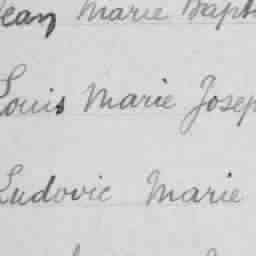 Jean Marie Bapt
Louis Marie Josep
Ludovic Marie